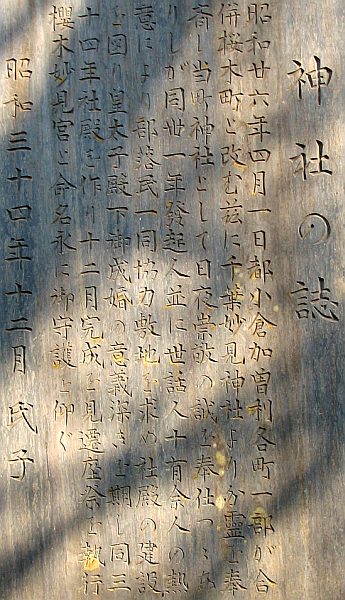 神社の誌
昭和廿六年四月一日都小倉加曽利各町一部が合
併桜木町と改む茲に千葉妙見神社より分霊を奉
斎し当町神社として日夜崇敬の誠を奉仕つゝあ
りしが同丗一年發起人並に世話人十有余人の熱
意により部落民一同協力敷地を求め社殿の建設
を図り皇太子殿下御成婚の意義深きを期し同三
十四年社殿を作り十二月完成を見遷座祭を執行
櫻木妙見宮と命名永に御守護を仰ぐ
昭和三十四年十二月 氏子